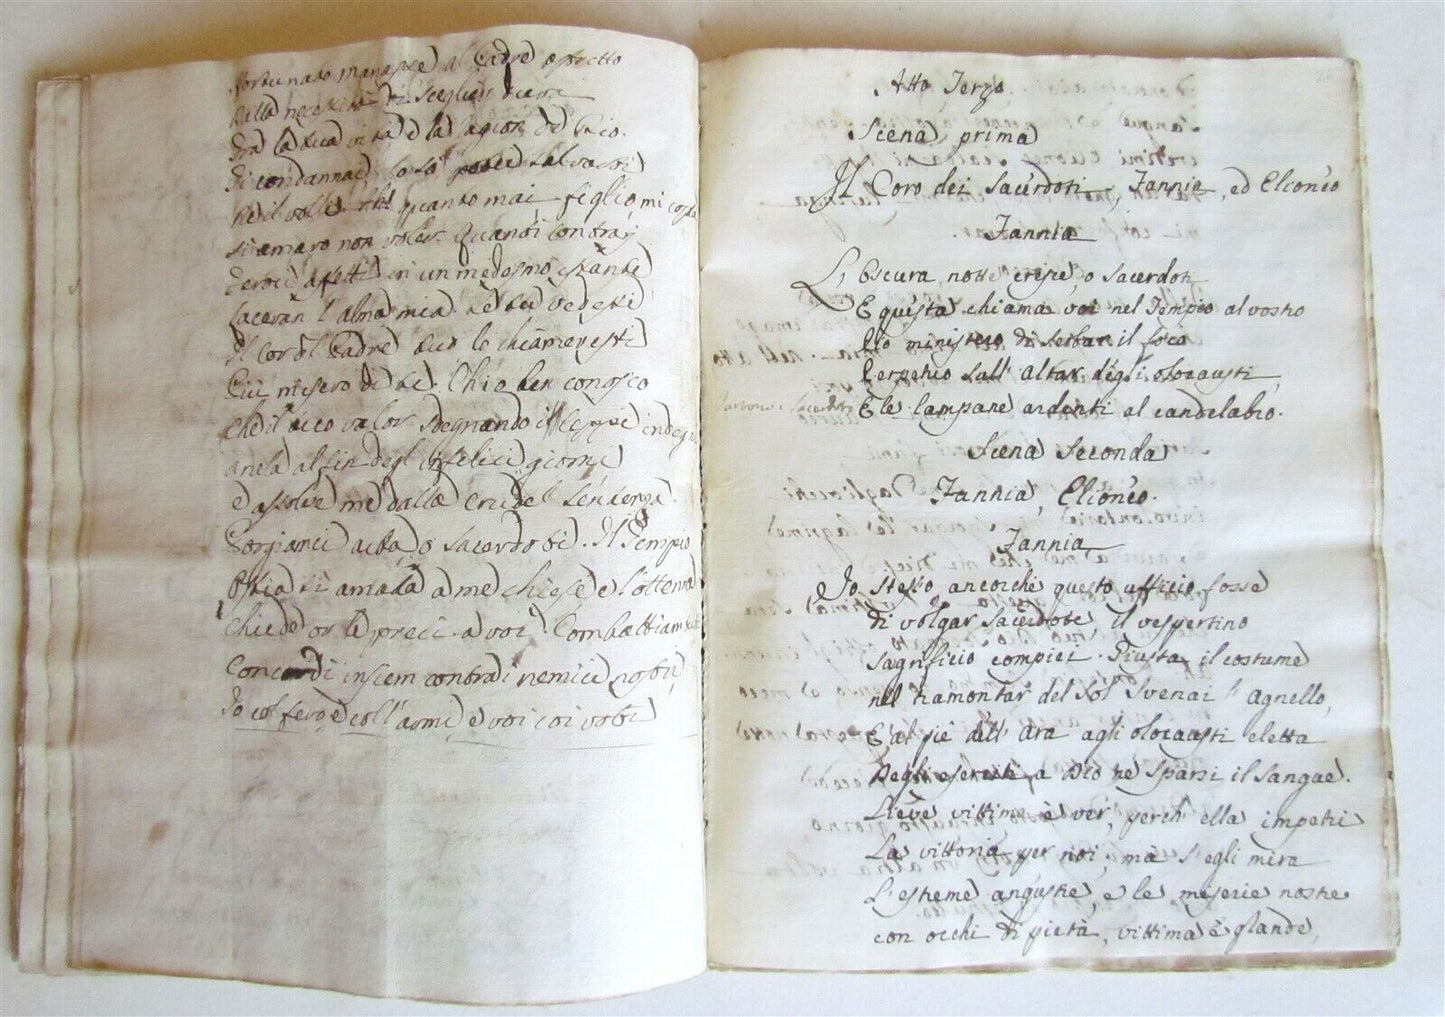 fortunato Manasse al Padre astretto
dalla necessità di sceglier
tra la tua vita e la cagion di Dio.
Ti condannai, lo so potei salvarti
nè il volli. Ah! quanto mai figlio, mi costa
sì amaro non voler. Quanti contrarj
feroci affetti in un medesmo istante
laceran l'alma mia. Se tu vedesti
Il cor Padre tuo lo chiameresti
Più misero di te. Ch'io ben conosco
che il tuo valor sdegnando il
anela al fin degl'infelici giorni
e assolve me dalla crudel sentenza.
Porgianci aita o Sacerdoti. Il Tempio
Ostia sì amara a me chiese e l'ottenne
chiede or le preci a voi. Combattiam
Concordi insiem contra i nemici nostri,
Io col ferro e coll'armi e voi coi voti
Atto Terzo
Scena prima
Il Coro dei Sacerdoti, Jannia, ed Elioneo
Jannia
L'Oscura notte cresce, o Sacerdoti
E questa chiama voi nel Tempio al vostro
Pio ministero di serbar il foco
Perpetuo sull'altar degli olocausti,
E le lampane ardenti al candelabro.
Scena Seconda
Jannia, Elioneo.
Jannia
Io stesso ancorchè questo ufficio fosse
di volgar Sacerdote, il vespertino
Sagrificio compiei. Giusta il costume
nel tramontar del Sol Svenai l'agnello,
E al piè dell'Ara agli olocausti eletta
Degli eserciti a Dio ne sparsi il sangue.
Lieve vittima è ver, perch'ella impetri
La vittoria per noi, ma s'egli mira
L'estreme angustie, e le miserie nostre
con occhi di pietà, vittima è grande,